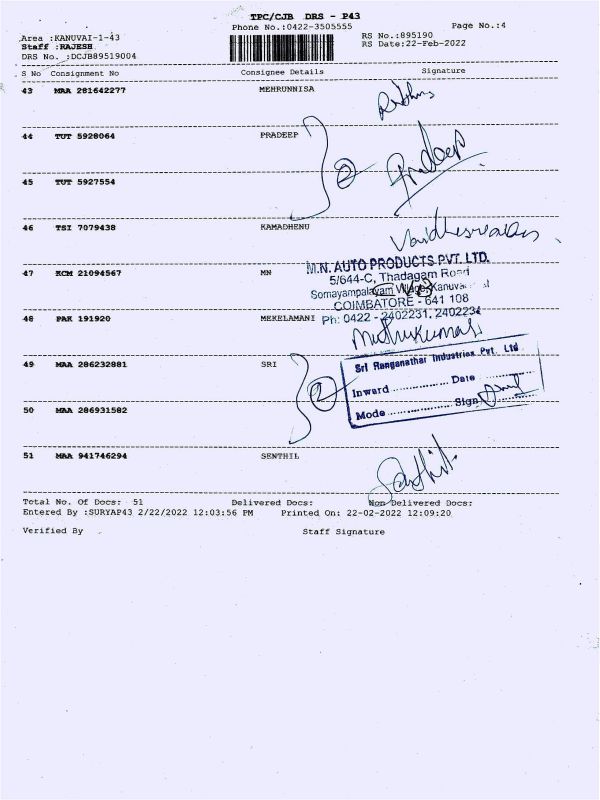 TPC/CJB DRS - P43
Phone No.:0422-3505555
Page No.:4
Area :KANUVAI-1-43
RS No.:895190
Staff :RAJESH
RS Date:22-Feb-2022
DRS No. :DCJB89519004
S No Consignment No Consignee Details Signature
43 MAA 281642277 MEHRUNNISA
44 TUT 5928064 PRADEEP
2 Pradeep
45 TUT 5927554
46 TSI 7079438 KAMADHENU
47 KCM 21094567 MN
M.N. AUTO PRODUCTS PVT. LTD.
5/644-C, Thadagam Road
Somayampalayam Village, Kanuvai
COIMBATORE - 641 108
Ph: 0422 - 2402231, 2402234
48 PAK 191920 MEKELAMANI
Muthukumar
49 MAA 286232881 SRI
Sri Ranganathar Industries Pvt. Ltd
2
Inward .............. Date ..............
Mode .............. Sign ..............
50 MAA 286931582
51 MAA 941746294 SENTHIL
Senthil
Total No. Of Docs: 51 Delivered Docs: Non Delivered Docs:
Entered By :SURYAP43 2/22/2022 12:03:56 PM Printed On: 22-02-2022 12:09:20
Verified By Staff Signature